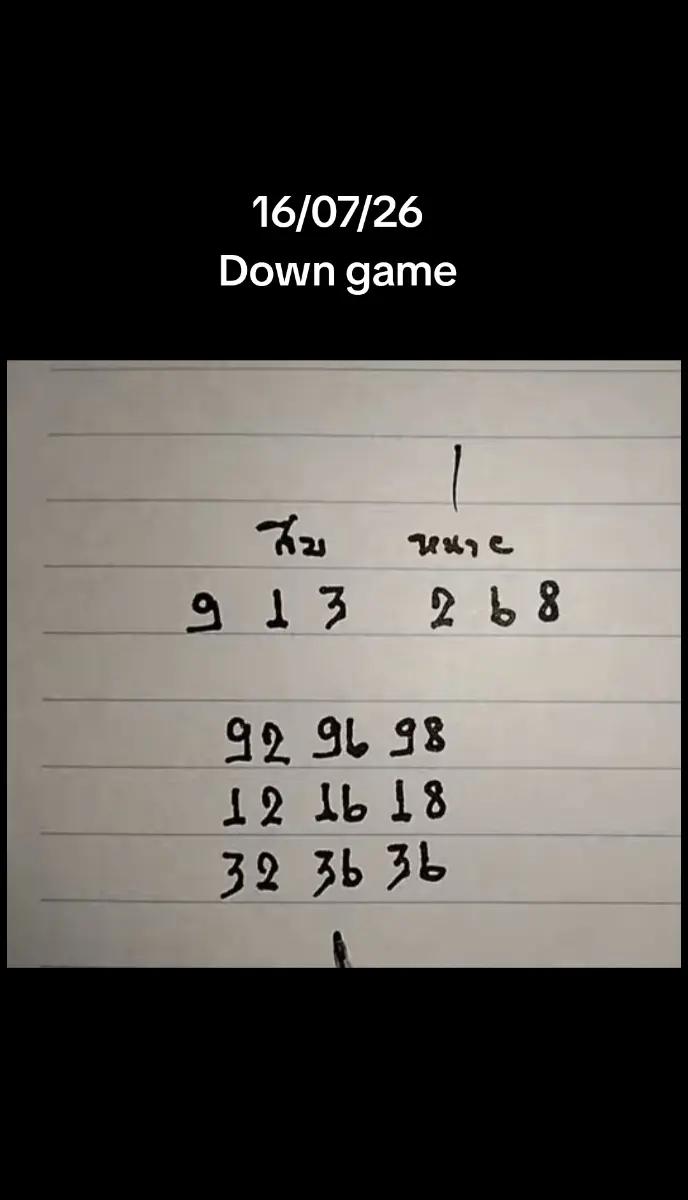 16/07/26
Down game
สิบ หน่วย
9 1 3 2 6 8
92 96 98
12 16 18
32 36 36